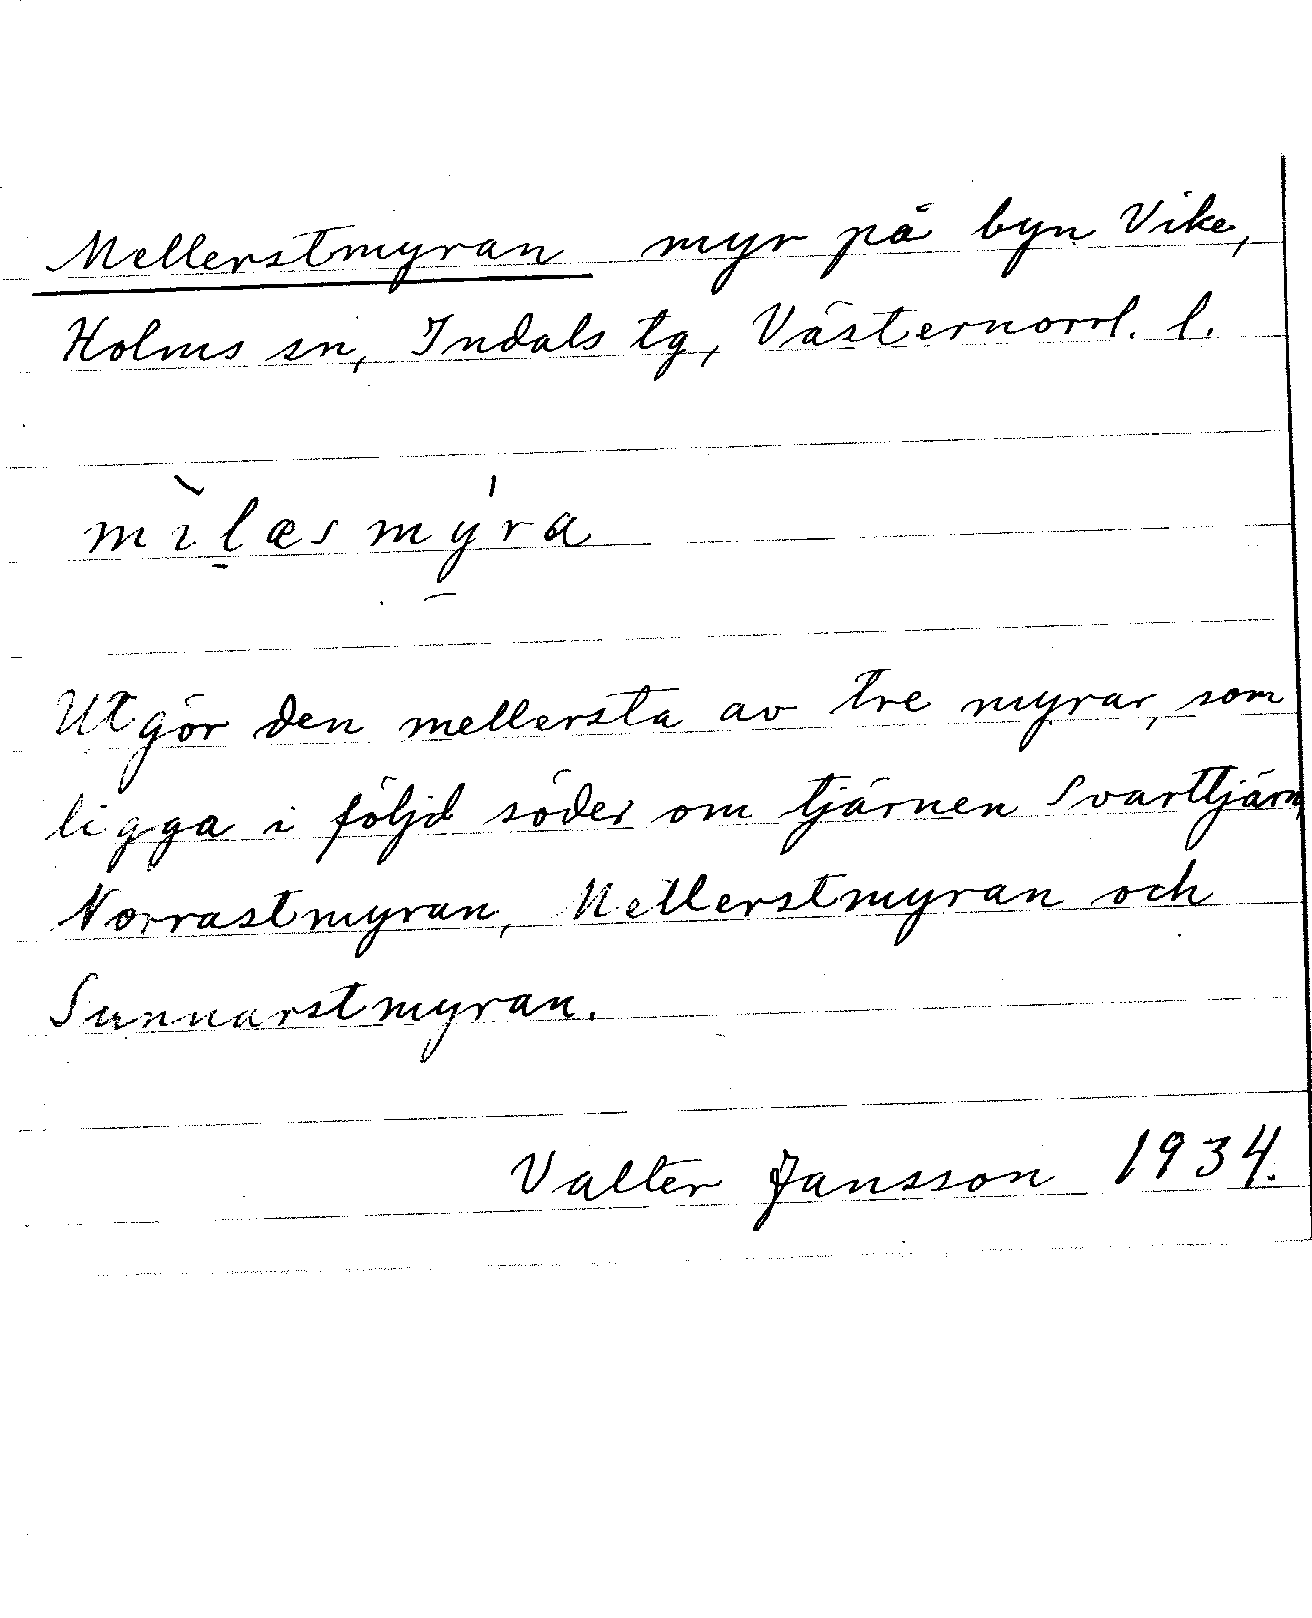 Mellerstmyran myr på byn Vike,
Holms sn, Indals tg, Västernorrl. l.
mı̀l̠æsmýra
Utgör den mellersta av tre myrar, som
ligga i följd söder om tjärnen Svarttjärn,
Norrastmyran, Mellerstmyran och
Sunnarstmyran.
Valter Jansson 1934.